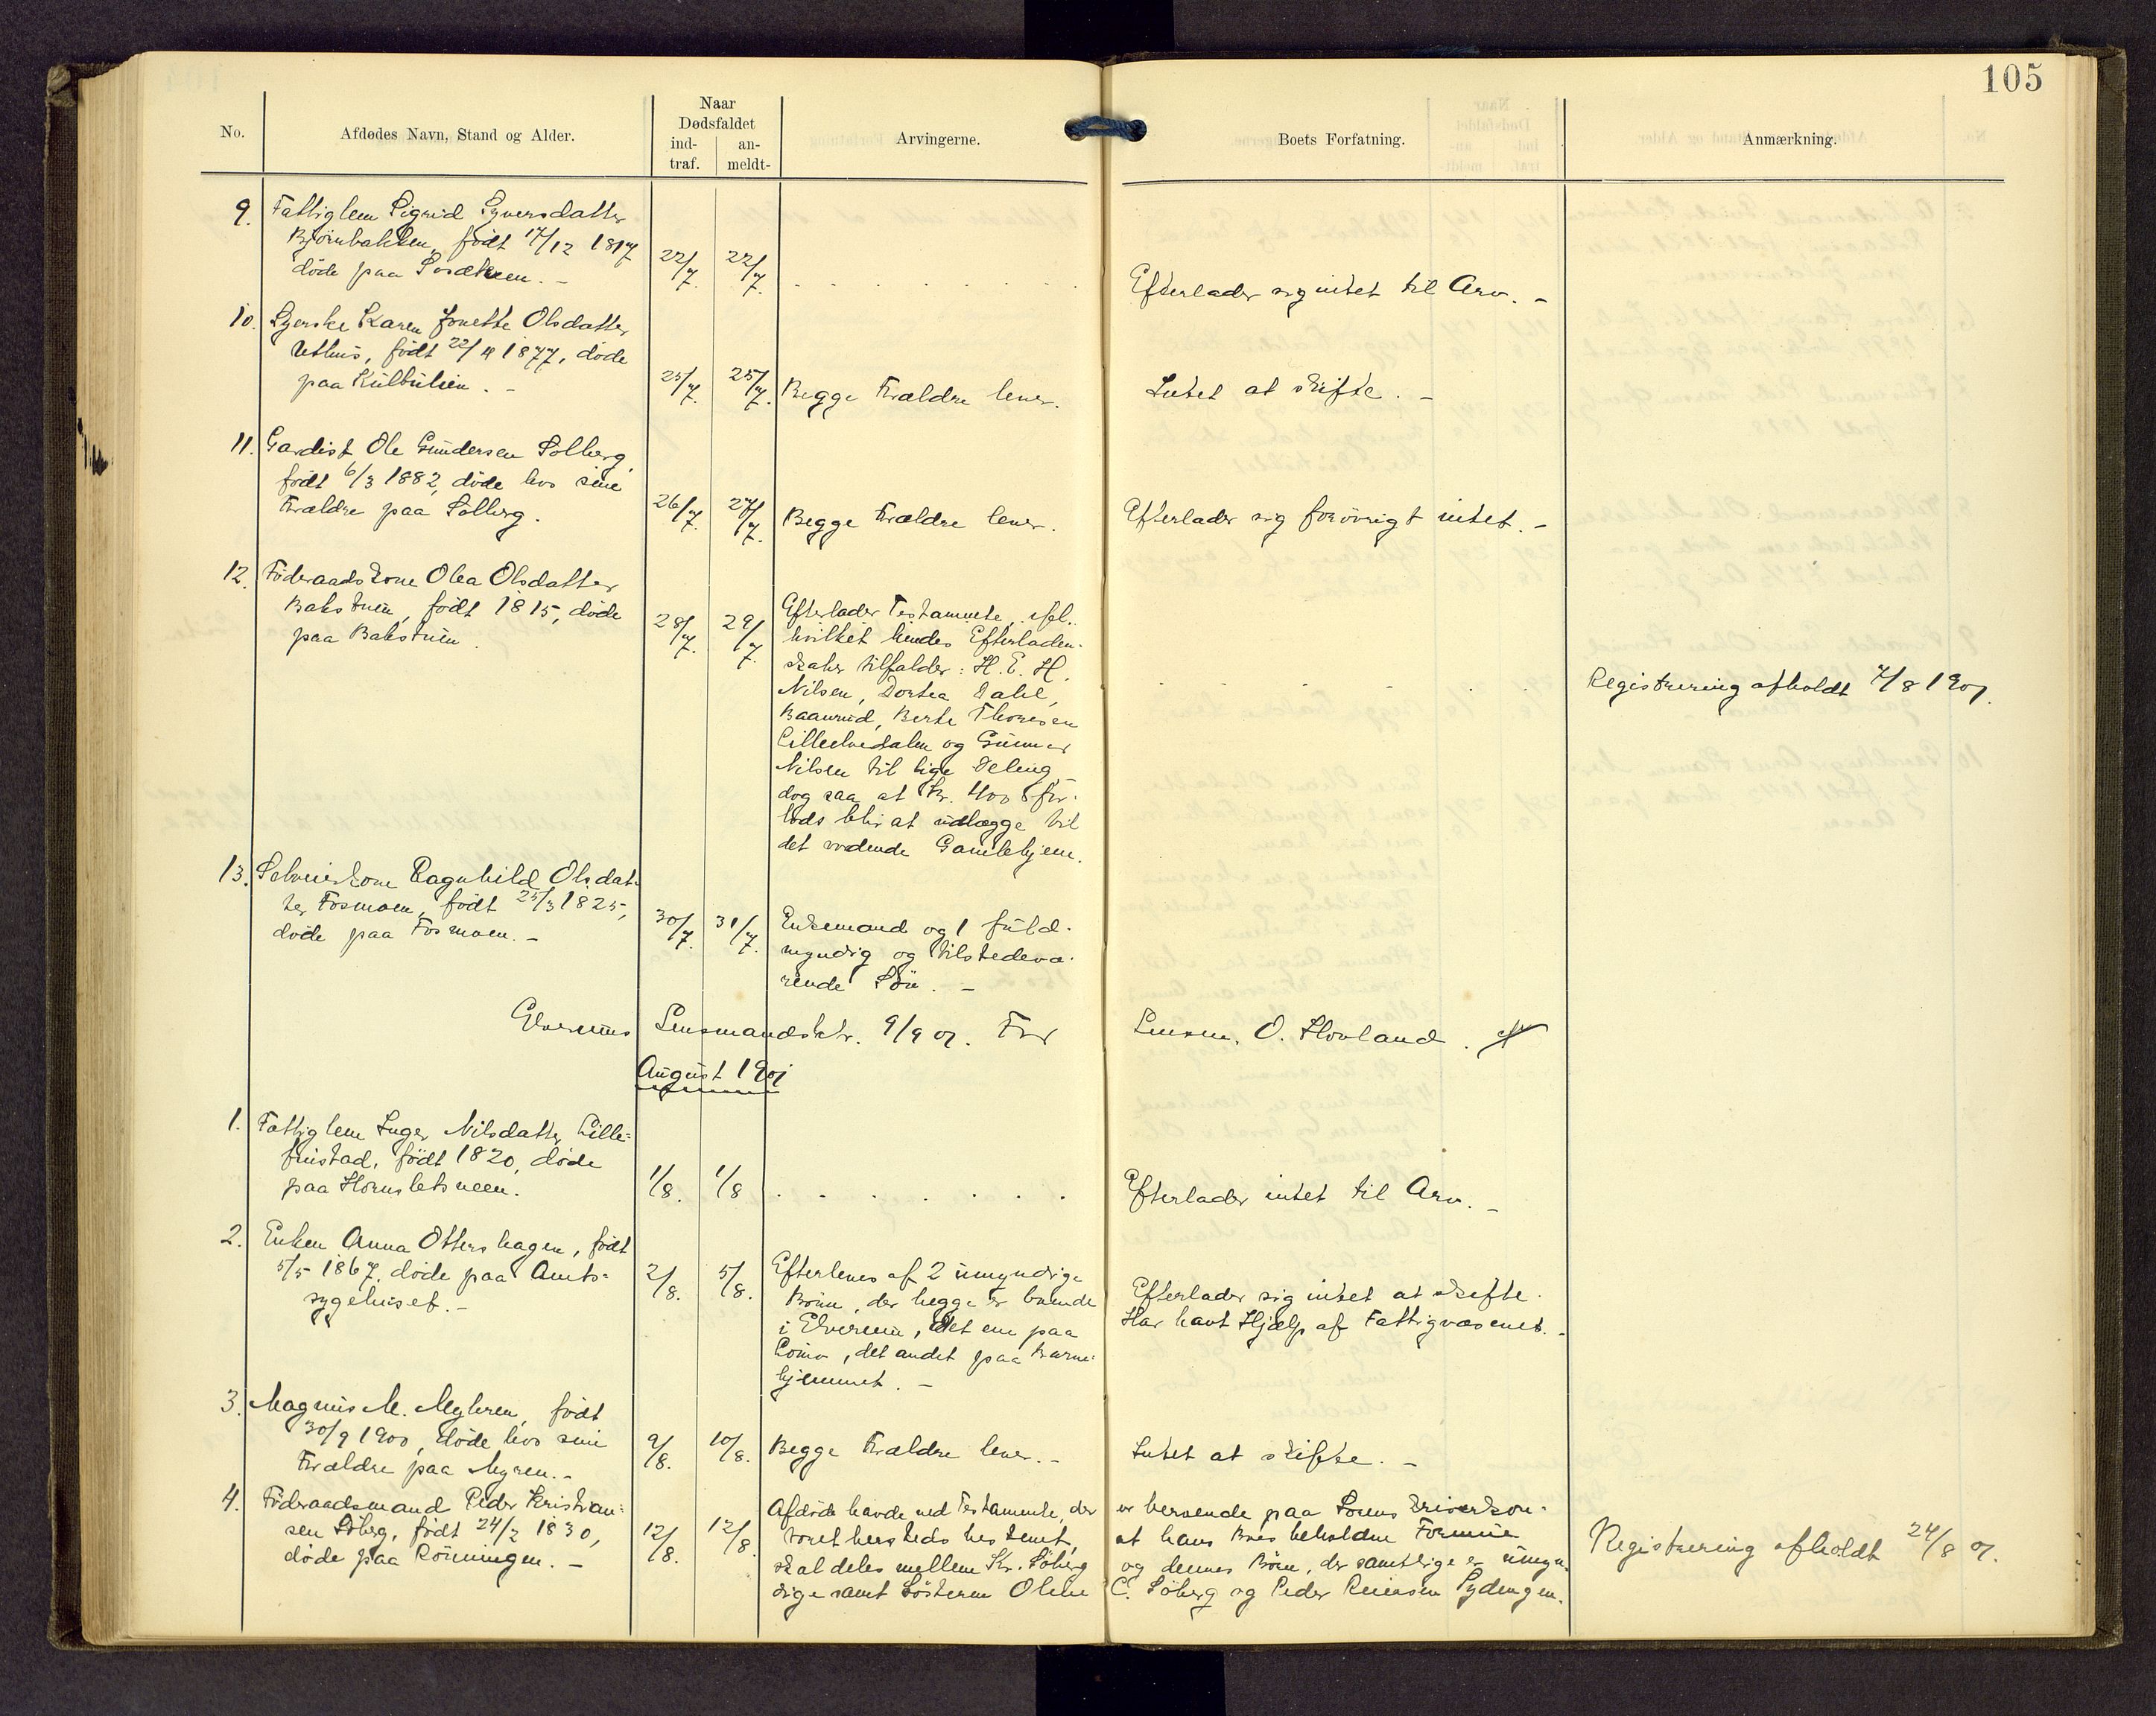 105
No.
Afdødes Navn, Stand og Alder.
Naar
Dødsfaldet
ind-
traf.
an-
meldt-
Arvingerne.
Boets Forfatning.
Anmærkning.
9. Fattiglem Sigrid Syversdatter
Björnbakken, født 17/12 1817
döde paa
22/7. 22/7. Efterlader sig intet til Arv. -
10. Syerske Karen Jonette Olsdatter
født 22/ 1877, döde
paa Kulbulien. -
25/7. 25/7. Begge Forældre lever. Intet at skifte. -
11. Gardist Ole Gundersen Solberg,
født 6/3 1882, döde hos sine
Forældre paa Solberg.
26/7. 27/7. Begge Forældre lever. Efterlader sig forövrigt intet. -
12. Föderaadskone Olea Olsdatter
Bakstuen, født 1815, döde
paa Bakstuen.
28/7. 29/7. Efterlader Testamente, iføl.
hvilket hendes Efterladen-
skaber tilfalder: H. E. H.
Nilsen, Dortea Dahl,
Baanrud, Berte Thoresen
Lilleelvedalen og Gunnar
Nilsen til lige Deling
dog saa at Kr. 400 for-
lods blir at udlægge til
det vordende Gamlehjem.
Registrering afholdt 7/8 1901.
13. Selveierkone Ragnhild Olsdat-
ter Fosmoen, født 25/3 1825,
döde paa Fosmoen. -
30/7. 31/7. Enkemand og 1 fuld-
myndig og tilstedevæ-
rende Sön. -
Elverums Lensmandsktr. 9/9 01. For Lensm. O. Hovland.
August 1901
1. Fattiglem Inger Nilsdatter Lille-
finstad, født 1820, döde
paa Hornsletsneen.
1/8. 1/8 Efterlader intet til Arv. -
2. Enken Anna Ottershagen, født
5/5 1867, döde paa Amts-
sygehuset. -
2/8. 5/8. Efterleves af 2 umyndige
Börn, der begge er boende
i Elverum, det ene paa
det andet paa Barne-
hjemmet. -
Efterlader sig intet at skifte.
Har havt Hjælp af Fattigvæsenet. -
3. Magnus M. Myhren, født
30/9 1900, döde hos sine
Forældre paa Myren. -
9/8. 10/8. Begge Forældre lever. - Intet at skifte. -
4. Föderaadsmand Peder Kristian-
sen Söberg, født 24/2 1830,
döde paa Rönningen. -
12/8. 12/8. Afdöde havde ved Testamente, der er beroende paa Sorenskriverkon-
toret hersteds bestemt, at hans Boes beholdne Formue
skal deles mellem Kr. Söberg og dennes Börn, der samtlige er umyn-
dige samt Sösteren Oline C. Söberg og Peder Sydengen.
Registrering afholdt 24/8 01.